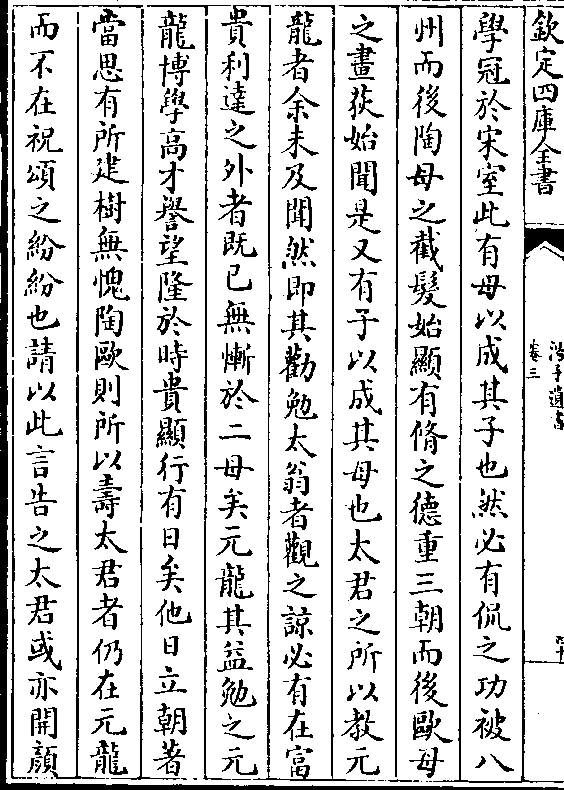 欽定四庫全書
卷三
學冠於宋室此有母以成其子也然必有侃之功被八
州而後陶母之截髮始顯有脩之德重三朝而後歐母
之畫荻始聞是又有子以成其母也太君之所以教元
龍者余未及聞然即其勸勉太翁者觀之諒必有在富
貴利達之外者既已無慚於二母矣元龍其益勉之元
龍博學高才譽望隆於時貴顯行有日矣他日立朝著
當思有所建樹無愧陶歐則所以壽太君者仍在元龍
而不在祝頌之紛紛也請以此言告之太君或亦開顔